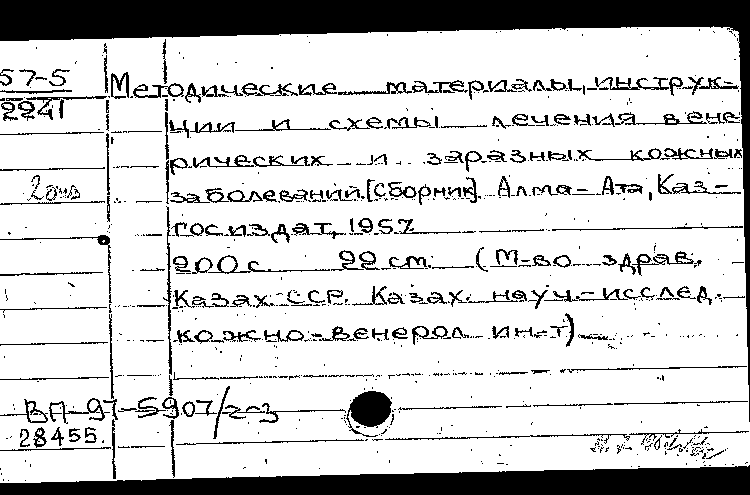 57-5
2241
Методические материалы, инструк-
ции и схемы лечения вене
рических и заразных кожных
заболеваний. [Сборник]. Алма-Ата, Каз-
госиздат, 1957.
200 с. 22 см. (М-во здрав.
Казах. ССР. Казах. науч.-исслед.
кожно-венерол. ин-т)
ВП-97-5907/2-3
28455.